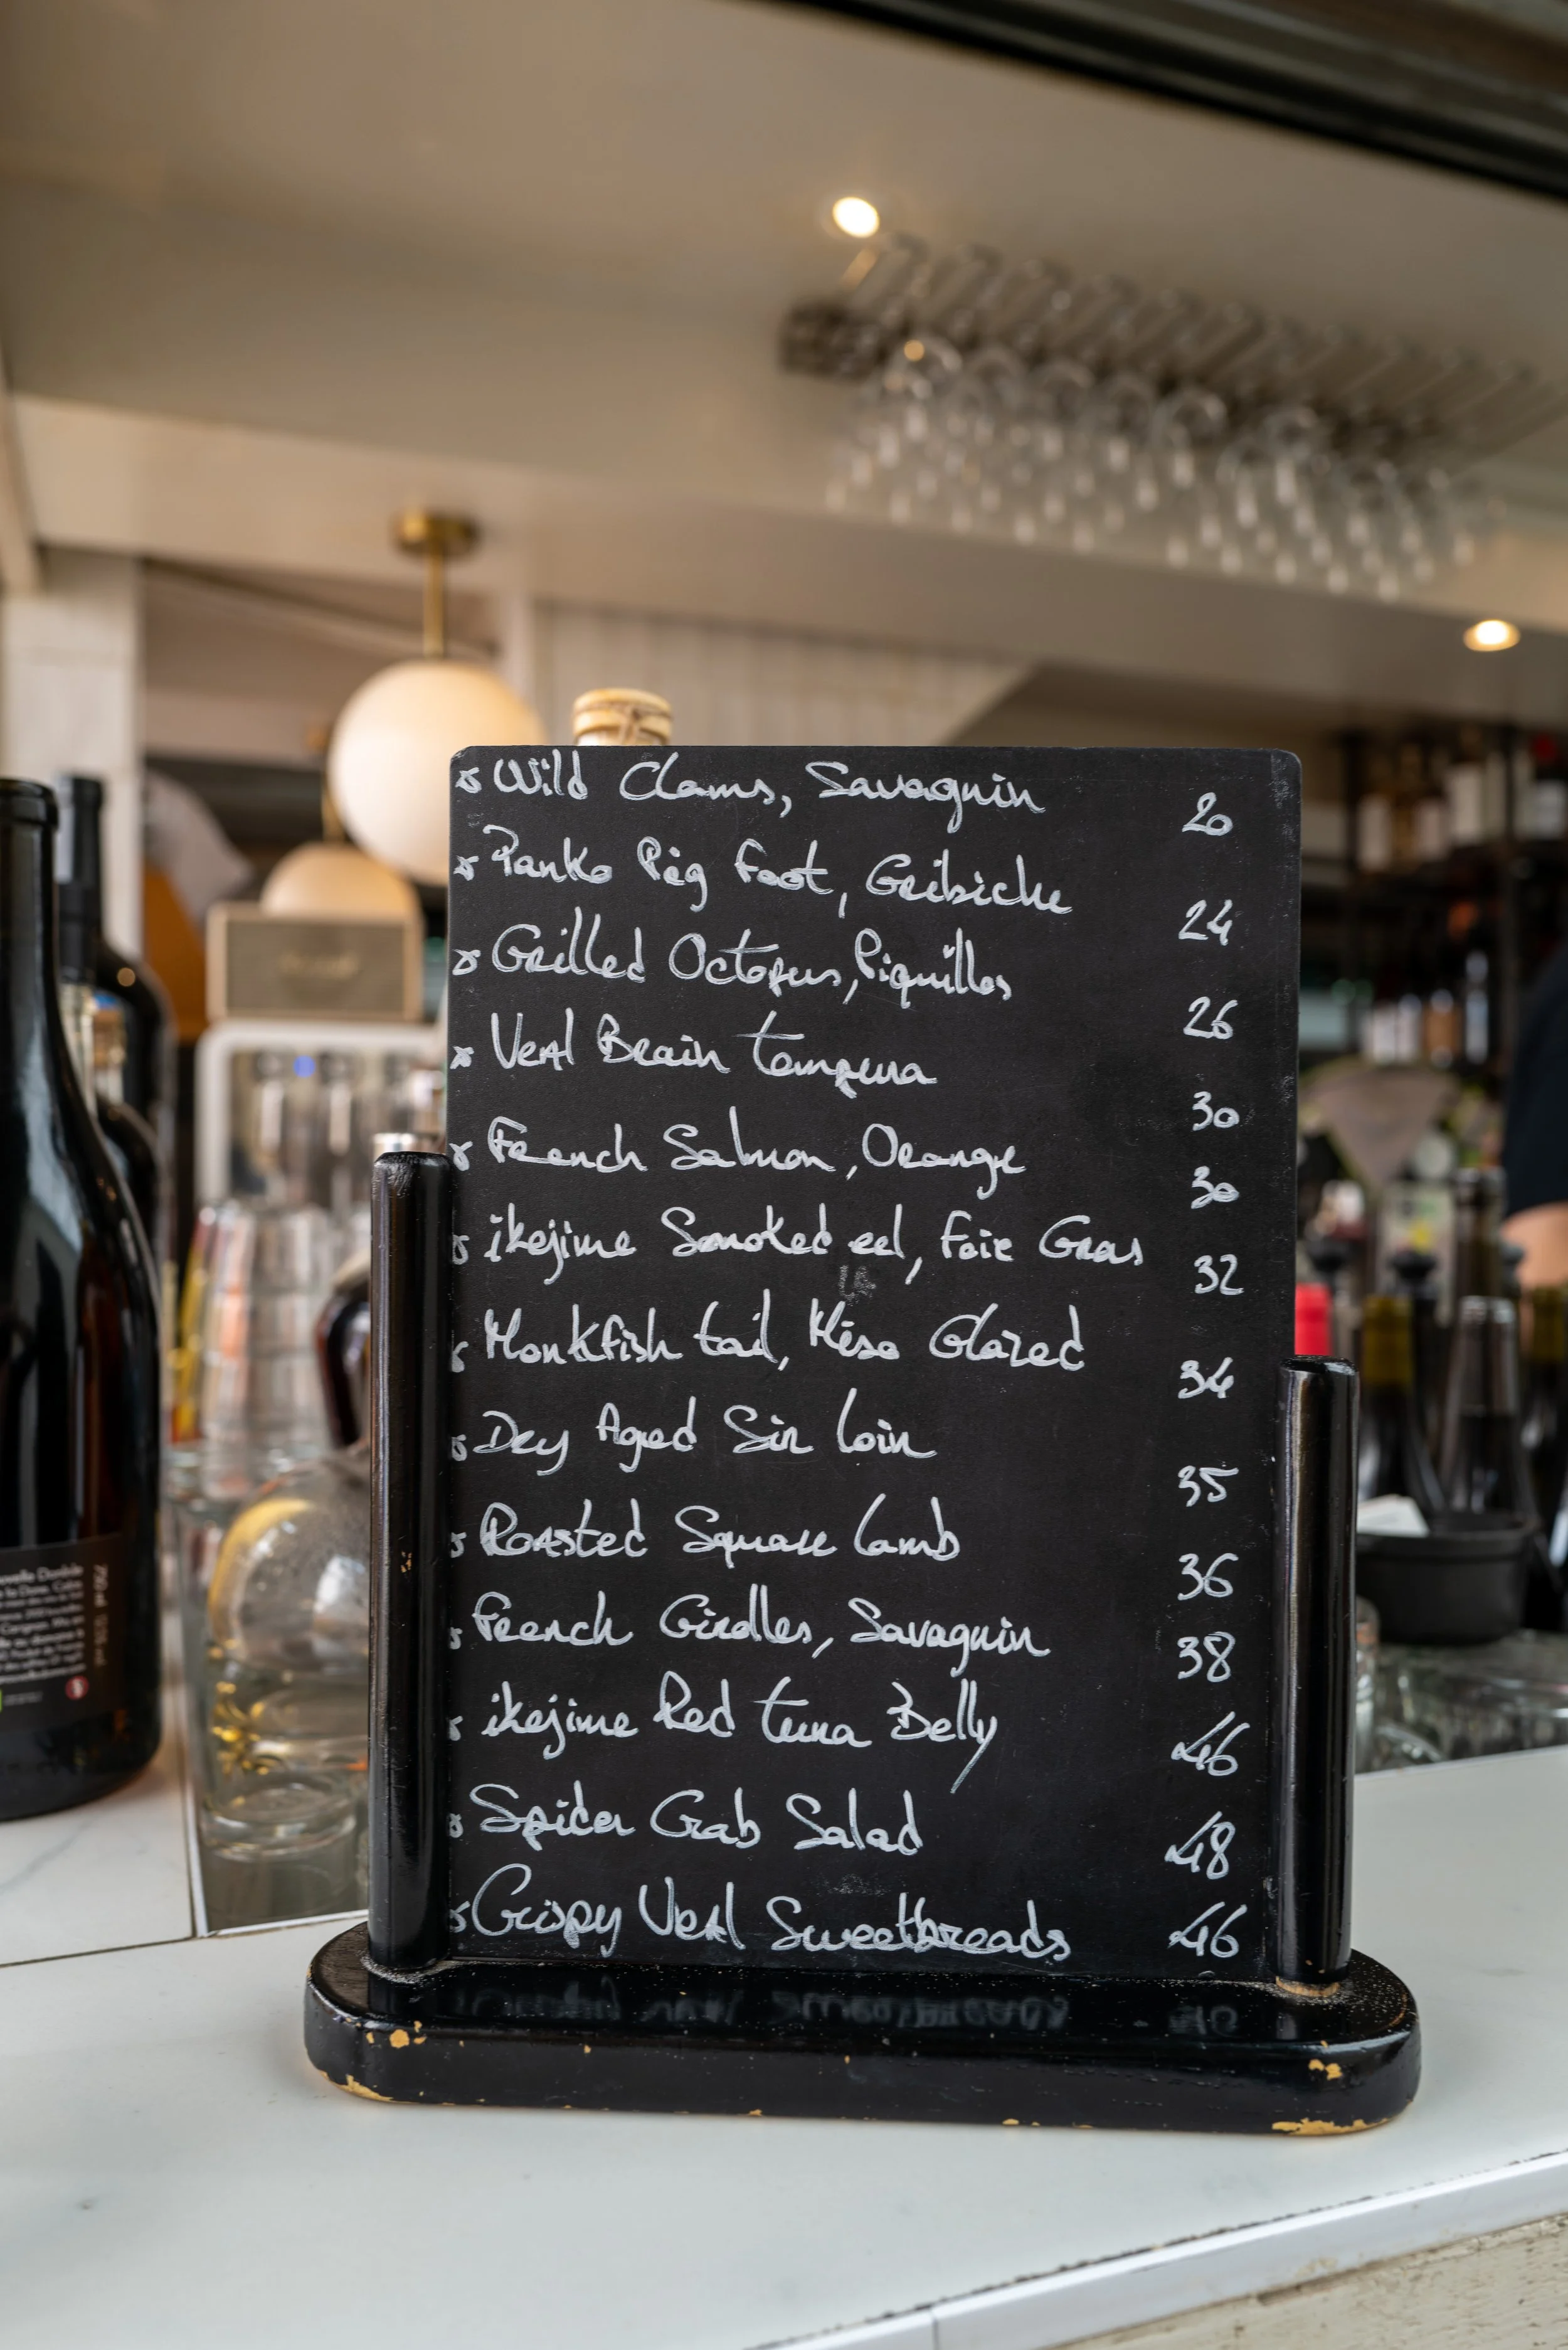 Wild Clams, Savagnin 20
Panko Pig foot, Gribiche 24
Grilled Octopus, Piquillos 26
Veal Brain tempura 30
French Salmon, Orange 30
ikejime Smoked eel, Foie Gras 32
Monkfish tail, Miso Glazed 34
Dry Aged Sir loin 35
Roasted Square Lamb 36
French Girolles, Savagnin 38
ikejime Red tuna Belly 46
Spider Crab Salad 48
Crispy Veal Sweetbreads 46